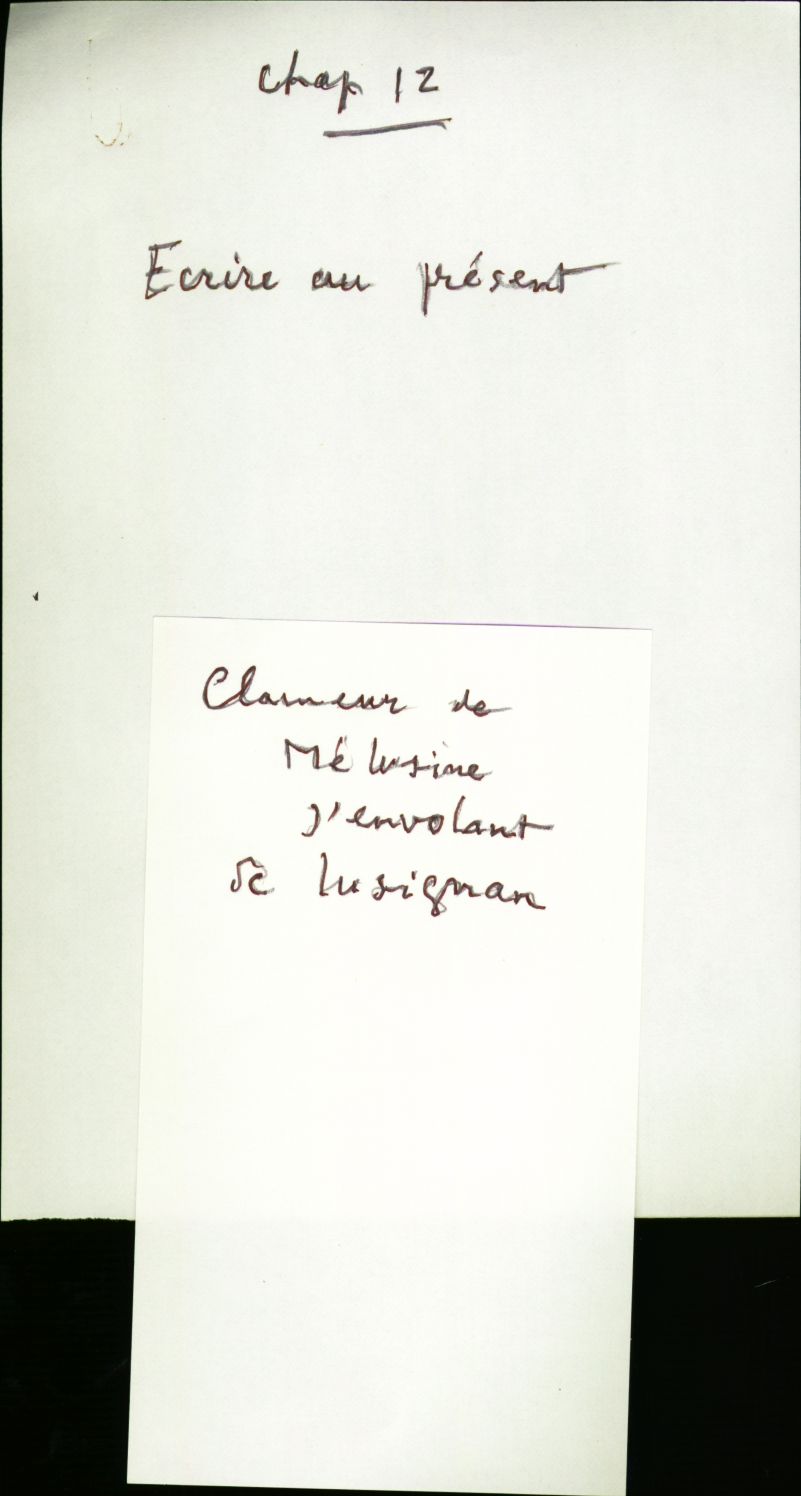 Chap 12
Ecrire au présent
Clameur de
Mélusine
s'envolant
de Lusignan